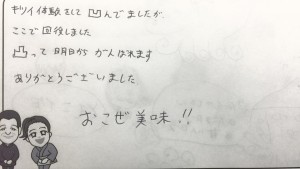 キツイ体験をして凹んでましたが
ここで回復しました
凸って明日から がんばれます
ありがとうございました
おこぜ美味!!